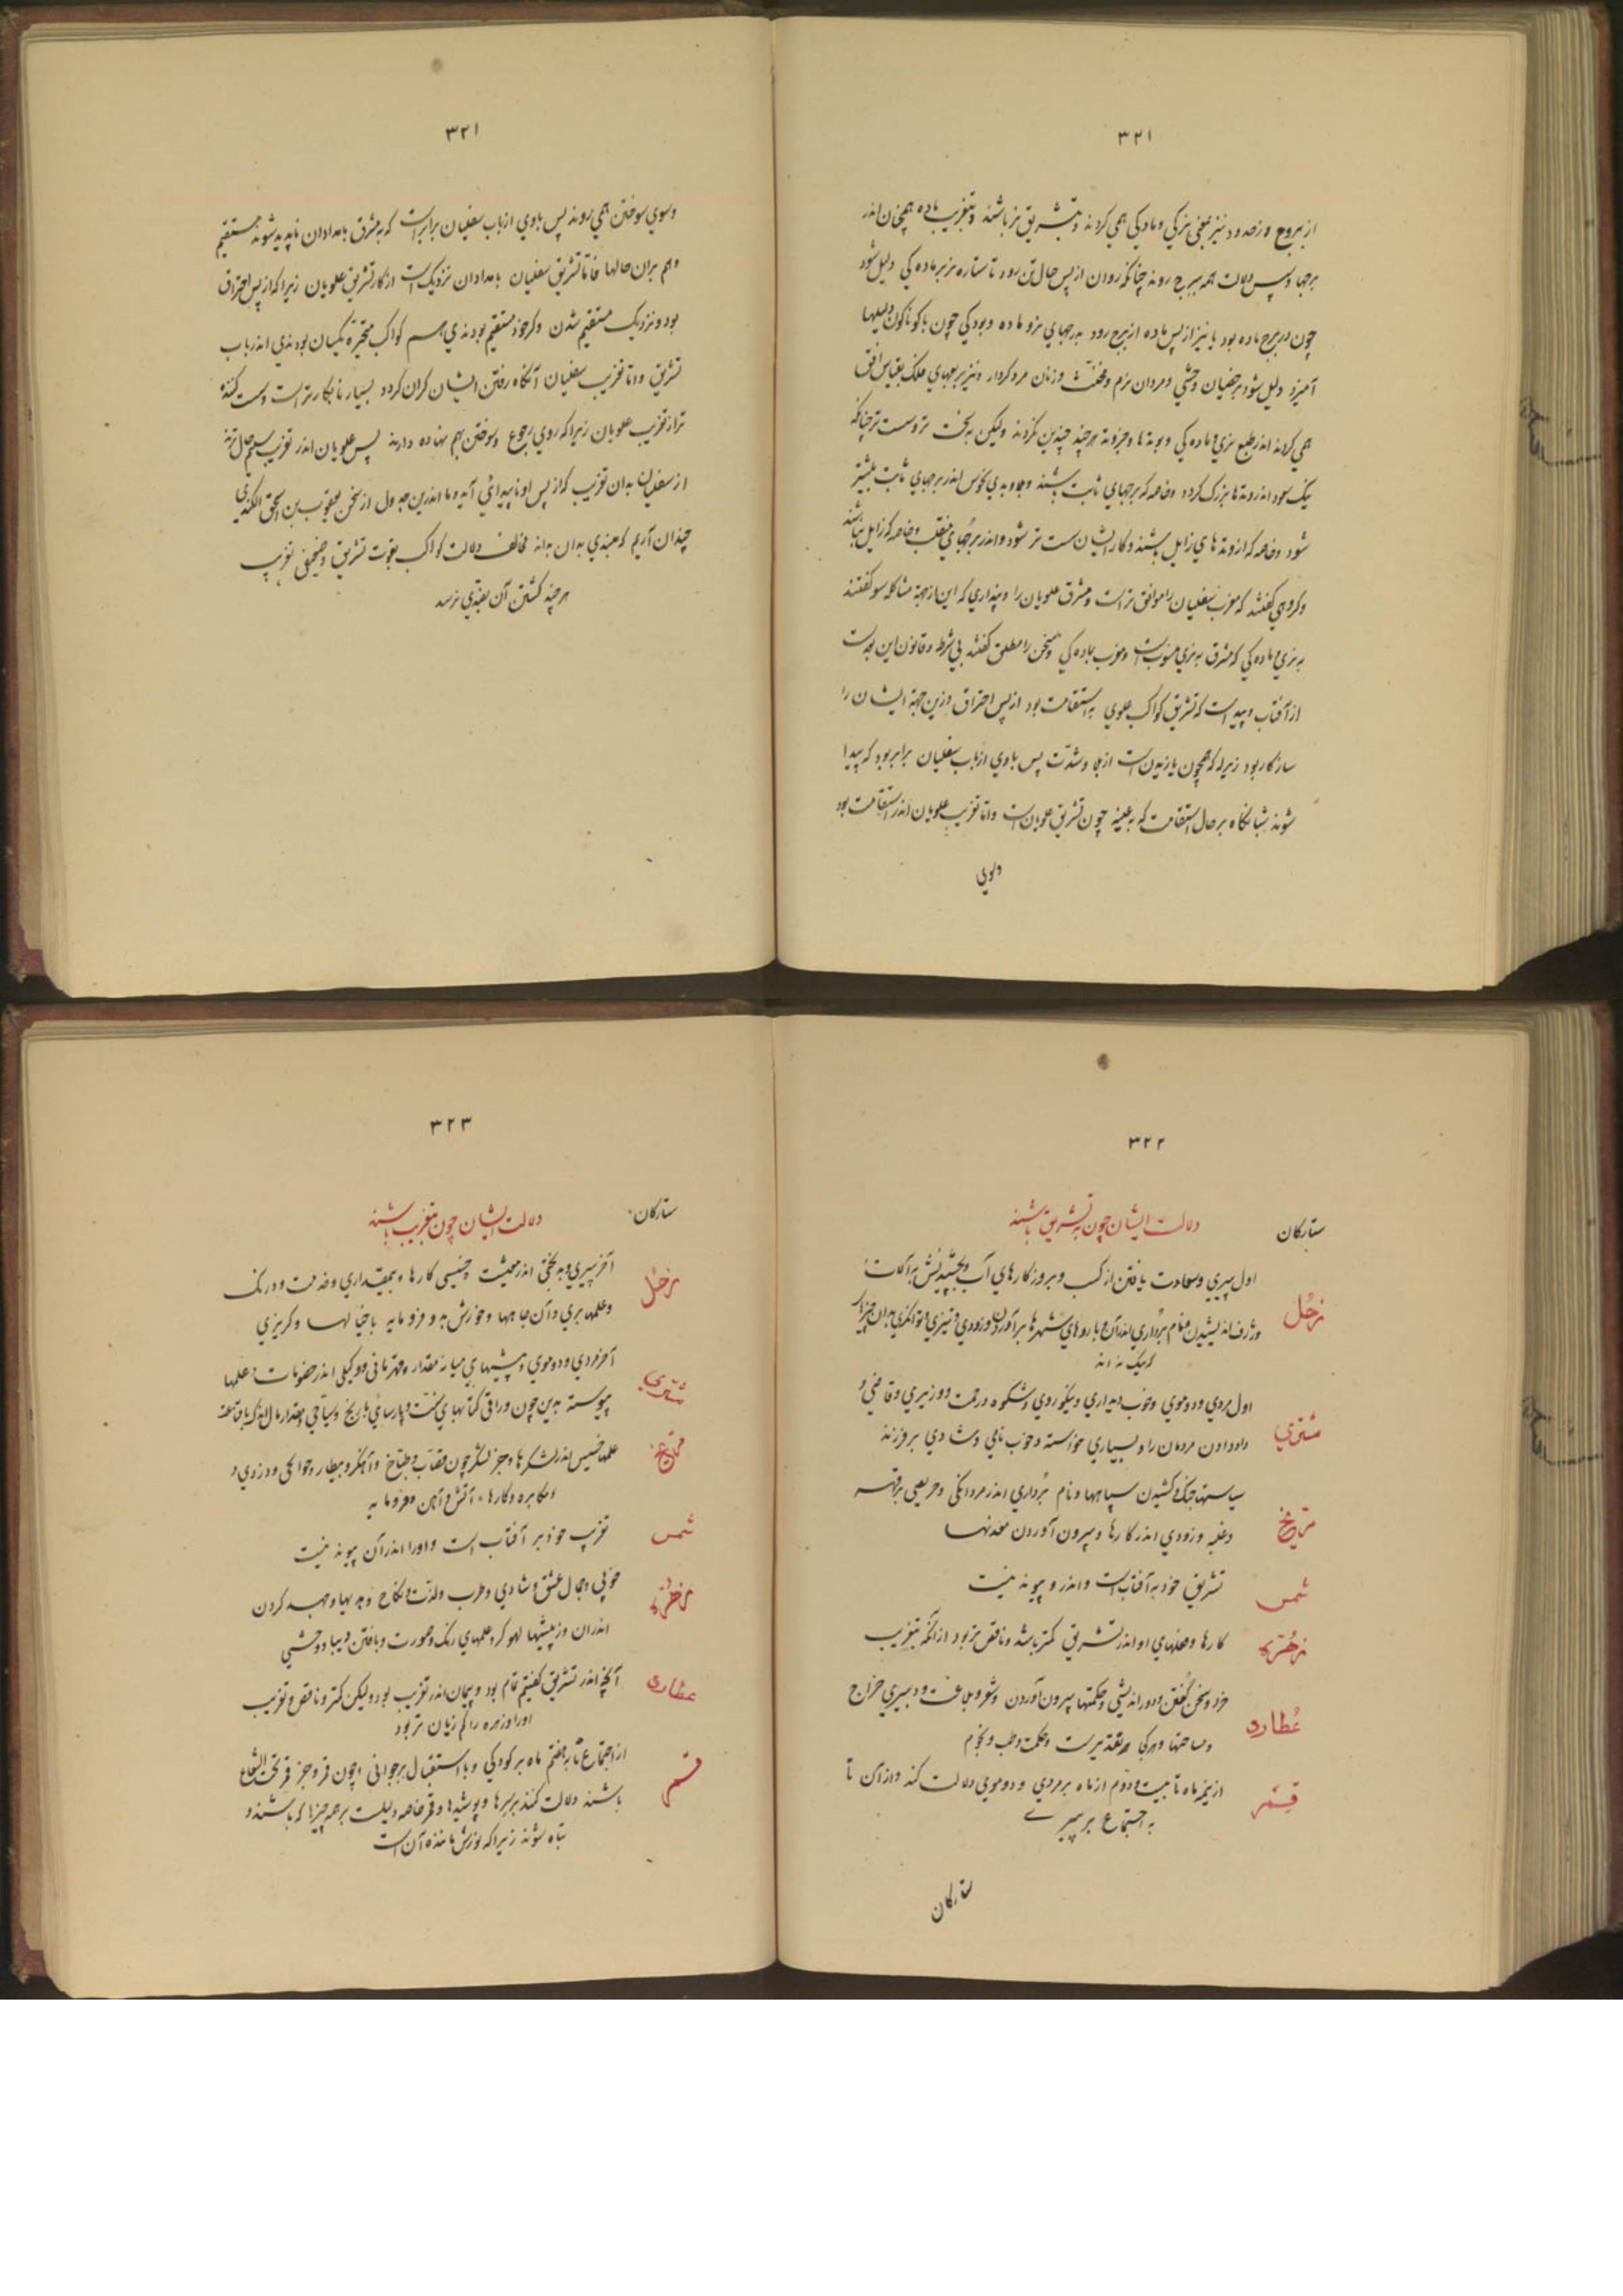 ۳۲۱
از بروج و ز حدود نیز بعضی نرکی و مادکی همی کردند و بتشریق نر باشند و بتغریب ماده همچنان اندر
برجها و پس دلالت همه ببرج روند چنانکه روان از پس حال تن رود تا ستاره نر بر ماده کی دلیل شود
چون ببرج ماده بود یا نیز از پس ماده از برج رود به برجهای نر و ماده و بودکی چون با کوناکون دلیلها
آمیزد دلیل شود بر خصیان و خنثی و مردان نرم و مخنث و زنان مرد کردار و نیز برجهای فلک بقیاس افق
همی کردند اندر طبع نری و ماده کی و بوتدها و جز وتد هر چند چنین نکردند ولیکن به بخت تر و سست تر چنانکه
نیک سود اندر وتدها بزرک کردد و خاصه که برجهای ثابت باشند و بدی نحوس اندر برجهای ثابت بیشتر
شود و خاصه که از وتدهای زایل باشند و کار ایشان سست تر شود و اندر برجهای منقلب و خاصه که زایل باشند
و کروهی کفتند که مغرب سفلیان را موافق تر است و مشرق علویان را و پنداری که این از جهة مشاکله سو کفتند
به نری و ماده کی که مشرق به نری منسوب است و مغرب بماده کی و سخن را مطلق کفتند بی شرط و قانون این بعدست
از آفتاب و پیداست که تشریق کواکب علوی به استقامت بود از پس احتراق وزین جهة ایشان را
سازکار بود زیرا که همچون باز پدید است از بلا و شدت پس باوی از باب سفلیان برابر بود که پیدا
شوند شبانکاه بر حال استقامت که بعینه چون تشریق علویان است و اما تغریب علویان اندر استقامت بود
وسوی
۳۲۱
وسوی سوختن همی روند پس باوی از باب سفلیان برابر است که بمشرق بامدادان ناپدید شوند مستقیم
وهم بران حالها فاما تشریق سفلیان بامدادان نزدیک است از کار تشریق علویان زیرا که از پس احتراق
بود و نزدیک مستقیم شدن و کر خود مستقیم بودندی هم کواکب متحیره یکسان بودندی اندر باب
تشریق و اما تغریب سفلیان آنکاه رفتن ایشان کران کردد بسیار نابکارتر است و سست کننده
تر از تغریب علویان زیرا که روی رجوع و سوختن بهم نهاده دارند پس علویان اندر تغریب سلیم حال ترند
از سفلیان بدان تغریب که از پس او ناپیدائی آید و ما اندرین جدول از سخن یعقوب بن اسحق الکندی
چندان آریم که مبتدی بدان بداند مخالف دلالت کواکب بقوت تشریق و ضعیفی تغریب
هر چند کشتن آن بمبتدی نرسد
۳۲۲
ستارکان دلالت ایشان چون به تشریق باشند
زحل اول پیری و سعادت یافتن از کسب و برو کارهای آب و بخشیدنش به آلات
وژرف اندیشیدن و نام برداری اندر آن و باروهای شهرها برآوردن و زودی و تیزی و توانکری بدان چیزها
که نیک نه اند
مشتری اول مردی و دوموی و خوب دیداری و نیکوروی و شکوه و رحمت و وزیری و قاضی و
داد دادن مردمان را و بسیاری خواسته و خوب نامی و شادی بر فرزند
مریخ سیاستها جنک و کشیدن سپاهها و نام برداری اندر مردانکی و حریصی بر قهر
و غلبه و زودی اندر کارها و بیرون آوردن معدنها
شمس تشریق خود به آفتاب است و اندر و پیوند نیست
زهره کارها و فعلهای او اندر تشریق کمتر باشد و ناقص تر بود از آنکه بتغریب
عطارد خرد و سخن کفتن و دوراندیشی و حکمتها بیرون آوردن و شعر و بلاغت و دبیری خراج
و مساحتها و هرکی به تقدیرست و حکمت و طب و نجوم
قمر از نیمه ماه تا بیست و دوم از ماه بر مردی و دوموئی دلالت کند واز آن تا
به اجتماع بر پیری
ستارکان
۳۲۳
ستارکان دلالت ایشان چون بتغریب باشند
زحل آخر پیری و بدبختی اندر معیشت و خسیسی کارها و بیمقداری و خدمت و درنک
وعلمها بری و آن جامها و خورش بد و فرومایه باخیالها و کربزی
مشتری آخر مردی و دوموی و پیشهای میانه مقدار و قهرمانی و وکیلی اندر خصومات وعلمها
پیوسته بدین چون وراقی کتابهای سنت و پارسائی تاریخ و سیاحی و مقدار مال اندک یافتن
مریخ علمها خسیس اندر لشکرها و جز لشکر چون قصاب و طباخ و آهنکر و بیطار و جوالحی و دزدی و
و مکابره و کارها به آتش و آهن و فرومایه
شمس تغریب خود بر آفتاب است و او را اندر آن پیوند نیست
زهره خوبی و جمال عشق و شادی و طرب و لذت و نکاح و هدیها و هبه کردن
اندران وز پیشها لهو کر و علمهای رنک و صورت و بافتن دیبا و وحشی
عطارد آنچ اندر تشریق کفتیم تمام بود و بهمان اندر تغریب بود ولیکن کمتر و ناقص و تغریب
او را و زهره را کم زیان تر بود
قمر از اجتماع تا به هفتم ماه بر کودکی و با استقبال بر جوانی و چون قمر و جز قمر تحت الشعاع
باشند دلالت کنند بر سرها و پوشیدها و قمر خاصه دلیلست بر همه چیزها که باشند و
تباه شوند زیرا که نورش ماننده آن است